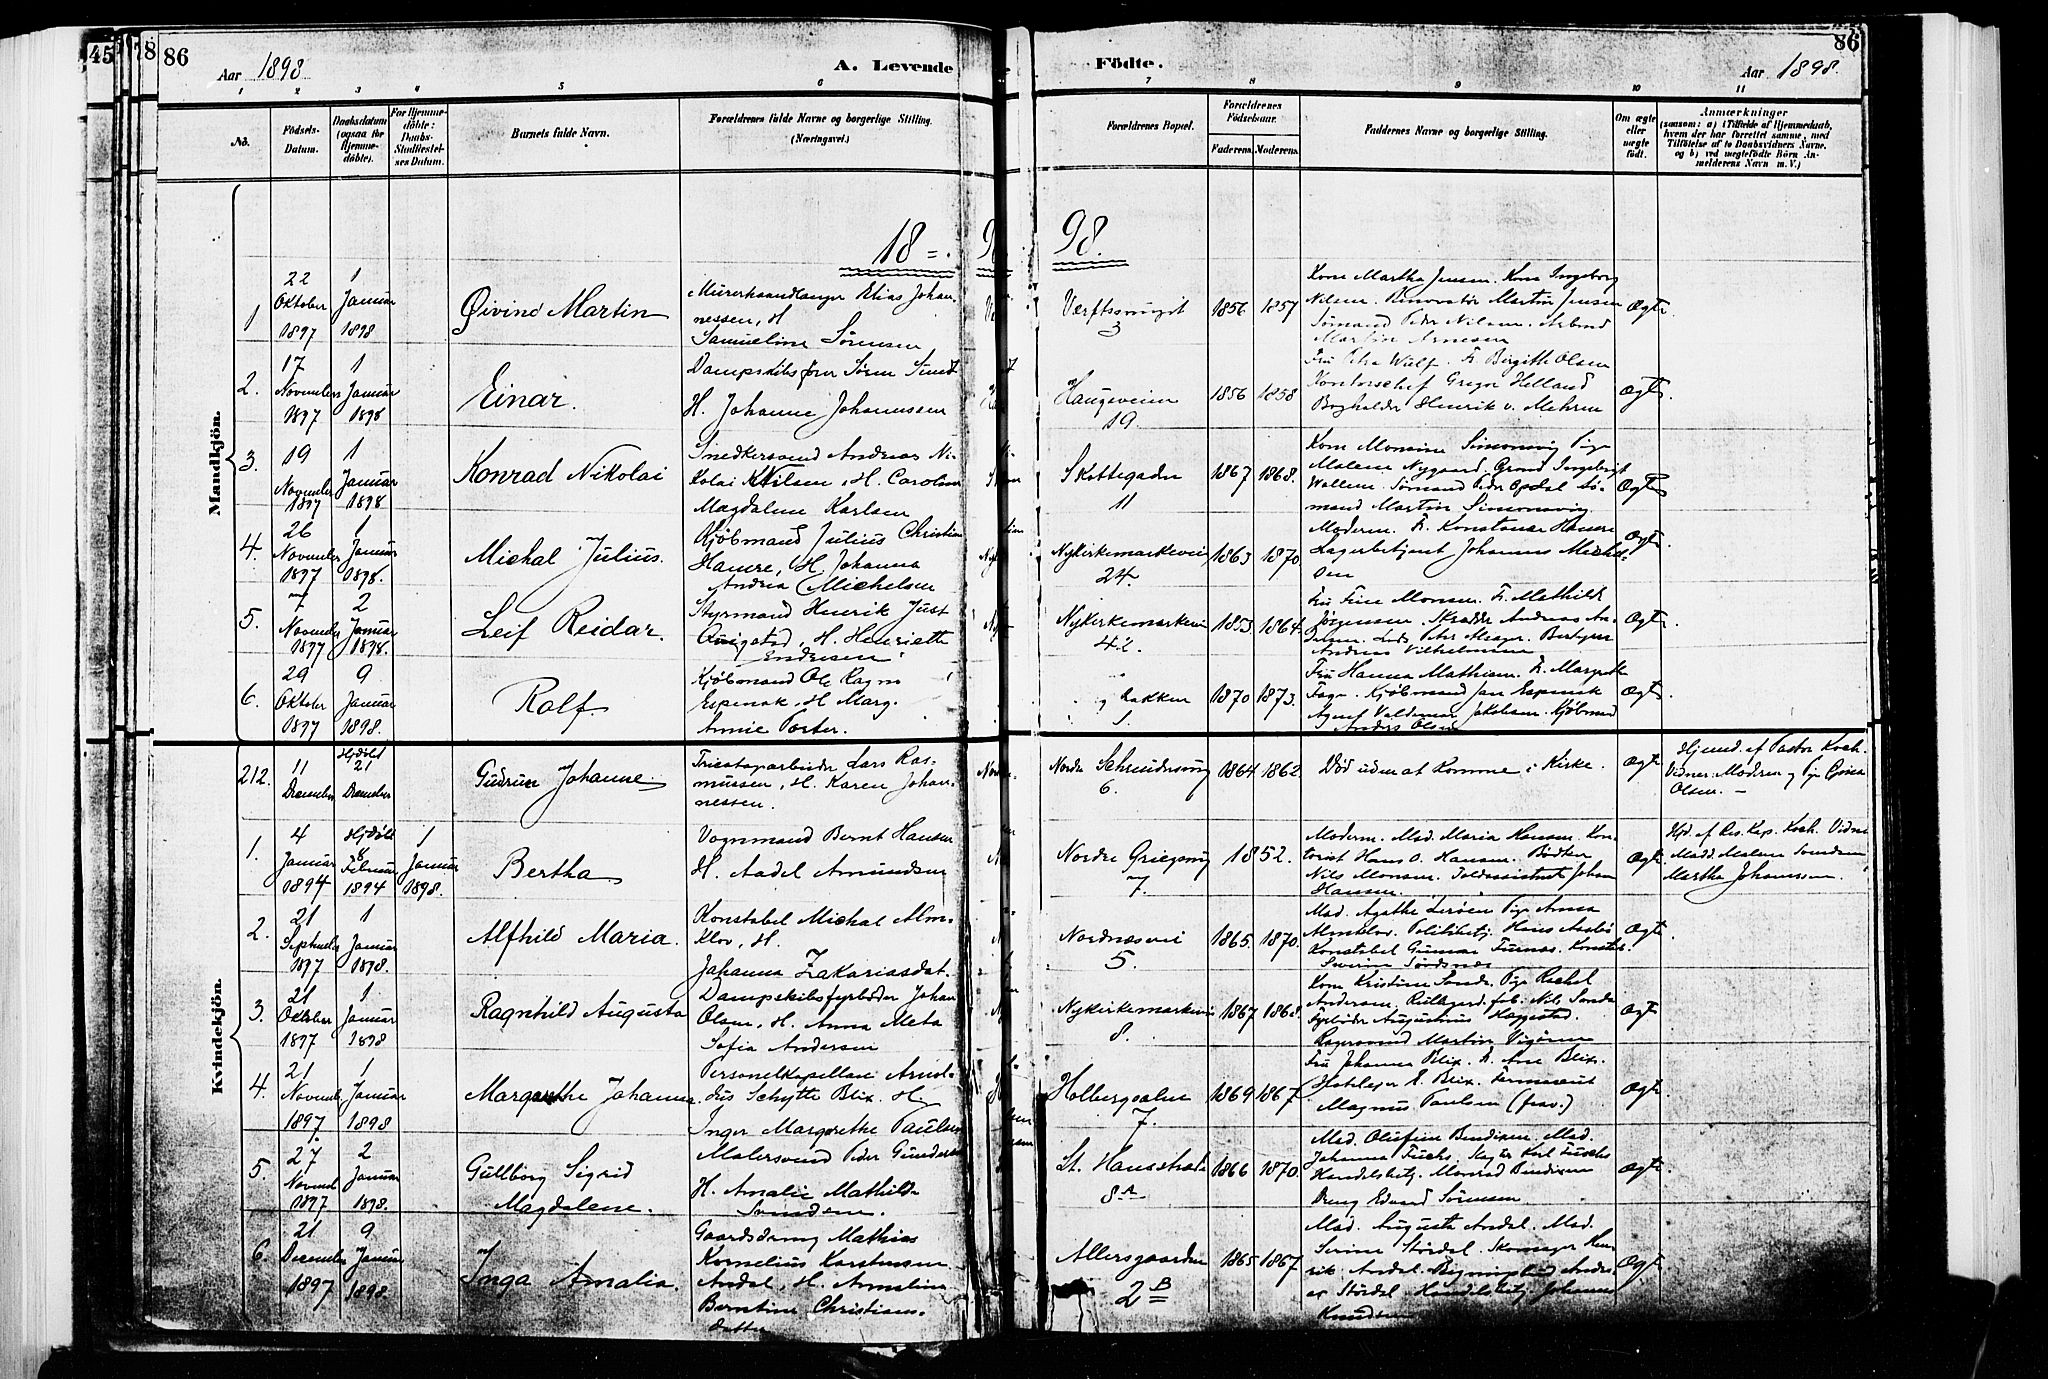 45
78
86
86
Aar 1898.
A. Levende
Födte.
Aar 1898.
1 2 3 4 5 6 7 8 9 10 11
No.
Födsels-
Datum.
Daabsdatum
(ogsaa for
Hjemme-
döbte).
For Hjemme-
döbte:
Daabs-
Stadfæstel-
ses Datum.
Barnets fulde Navn.
Forældrenes fulde Navne og borgerlige Stilling.
(Næringsvei.)
Forældrenes Bopæl.
Forældrenes
Födselsaar.
Faderens. Moderens.
Faddernes Navne og borgerlige Stilling.
Om ægte
eller
uægte
födt.
Anmærkninger
(saasom: a) i Tilfælde af Hjemmedaab,
hvem der har forrettet samme, med
Tilföielse af to Daabsvidners Navne.
og b) ved uægtefödte Börn An-
melderens Navn m. V.)
18 98.
Mandkjön.
1
22
Oktober
1897
1
Januar
1898
Øivind Martin
Murerhaandlanger Elias Johan-
nessen, H.
Samueline Sørensen
Verftssmuget
3
1856 1857
Kone Martha Jensen. Kone Ingeborg
Nilsen. Renovatør Martin Jensen
Sømand Peder Nilsen. Arbmd
Martin Arnesen
Ægte.
2.
17
November
1897
1
Januar
1898
Einar.
Dampskibsfører Søren Sundt
H. Johanne Johannessen
Haugeveien
19.
1856 1858
Fru Petra Wulf. Fr. Birgithe Olsen
Kontorschef Greger Helland
Bogholder Henrik v. Mehren
Ægte.
3.
19
November
1897
1
Januar
1898
Konrad Nikolai
Snedkersvend Andreas Ni-
kolai Nilsen, H. Caroline
Magdalene Karlsen
Skottegaden
11
1867 1868.
Kone Monsine Simonsvig Pige
Malene Nygaard. Grosd Ingebrigt
Wallem. Sømand Peder Opdal Sø-
mand Martin Simonsvig
Ægte
4.
26
November
1897
1
Januar
1898.
Michal Julius.
Kjøbmand Julius Christian
Hamre, H. Johanna
Andrea Michelsen
Nykirkemarkevei
24.
1863 1870.
Moderen. Fr. Konstanse Hamre
Lagerbetjent Johannes Michel-
sen
Ægte.
5.
7
November
1897
2
Januar
1898.
Leif Reidar.
Styrmand Henrik Just
Qvigstad, H. Henriette
Endresen
Nykirkemarkevei
42.
1853 1864.
Fru Fine Monsen. Fr. Mathilde
Jørgensen. Skrædder Andreas An-
Andreas Vilhelmsen
Ægte.
6.
29
Oktober
1897
9
Januar
1898.
Rolf.
Kjøbmand Ole Ragn
Espenak, H. Marg.
Annie Porter.
1.
1870 1873.
Fru Hanna Mathiesen. Fr. Margrethe
Fage. Kjøbmand Jan Espenak
Agent Valdemar Jakobsen. Kjøbmand
Anders Olsen
Ægte.
Kvindekjön.
212.
11
December
Hjdøbt
21
December
Gudrun Johanne.
Tricotagearbeider Lars Ras-
mussen, H. Karen Johan-
nessen.
Nordre Schreudersmug
6.
1864 1862
Død uden at komme i Kirke.
Ægte
Hjemd. af Pastor Koch.
Vidner: Moderen og Pige
Olsen. —
1.
4
Januar
1894
Hjdøbt
8
Februar
1894
1
Januar
1898.
Bertha
Vognmand Bernt Hansen
H. Aadel Amundsen
Nordre Griegsmug
7.
1852.
Moderen. Mad. Maria Hansen. Kon-
torist Hans O. Hansen. Bødker
Nils Monsen. Toldassistent Johan
Hansen.
Ægte
Hjd. af Res. Kap. Koch. Vidner
Madd. Malene
Martha Johannessen.
2.
21
September
1897
1
Januar
1898.
Alfhild Maria.
Konstabel Michal Alm-
klov, H.
Johanna Zakariasdat.
Nordnæsvei
5.
1865. 1870.
Mad. Agathe Lerøen Pige Anna
Almklov. Politibetj. Hans
Konstabel Gunnar Furnæs. Konstab.
Severin
Ægte.
3.
21
Oktober
1897
1
Januar
1898
Ragnhild Augusta
Dampskibsfyrbøder Johan
Olsen, H. Anna Meta
Sofia Andersen
Nykirkemarkevei
8.
1867 1868.
Kone Kristine Sande. Pige Rachel
Andersen.
Fyrbøder Augustinus Haggestad.
Bagersvend Martin Vigøren
Ægt
4.
21
November
1897
1
Januar
1898
Margrethe Johanne.
Personelkapellan Arnol-
dus Schytte Blix, H.
Inger Margrethe Paulsen
Holbergsalm
7.
1869 1867
Fru Johanna Blix. Fr. Ane Blix.
Hotelejer E. Blix. Farmaceut
Magnus Paulsen (frav.)
Ægte.
5.
27
Novemb
1897
2
Januar
1898.
Gullborg Sigrid
Magdalene.
Malersvend Peder Gundersen
H. Amalie Mathilde
Svendsen.
St. Hansstræde
8 A
1866 1870.
Mad. Olufine Bendixen Mad.
Johanna Fuchs. Skipper Karl Fuchs
Handelsbetj. Monrad Bendixen
Dreng Edvard Sørensen
Ægte.
6.
21
December
1897
9
Januar
1898.
Inga Amalia.
Gaardsdreng Mathias
Kornelius Karstensen
Andal, H. Annalina
Berntine Christians-
datter
Allersgaarden
2 B
1865 1867
Mad. Augusta Andal. Mad.
Serine Størdal. Skomager Hen-
rik Andal. Andre-
as Størdal. Handelsbetj Johannes
Knudsen
Ægte